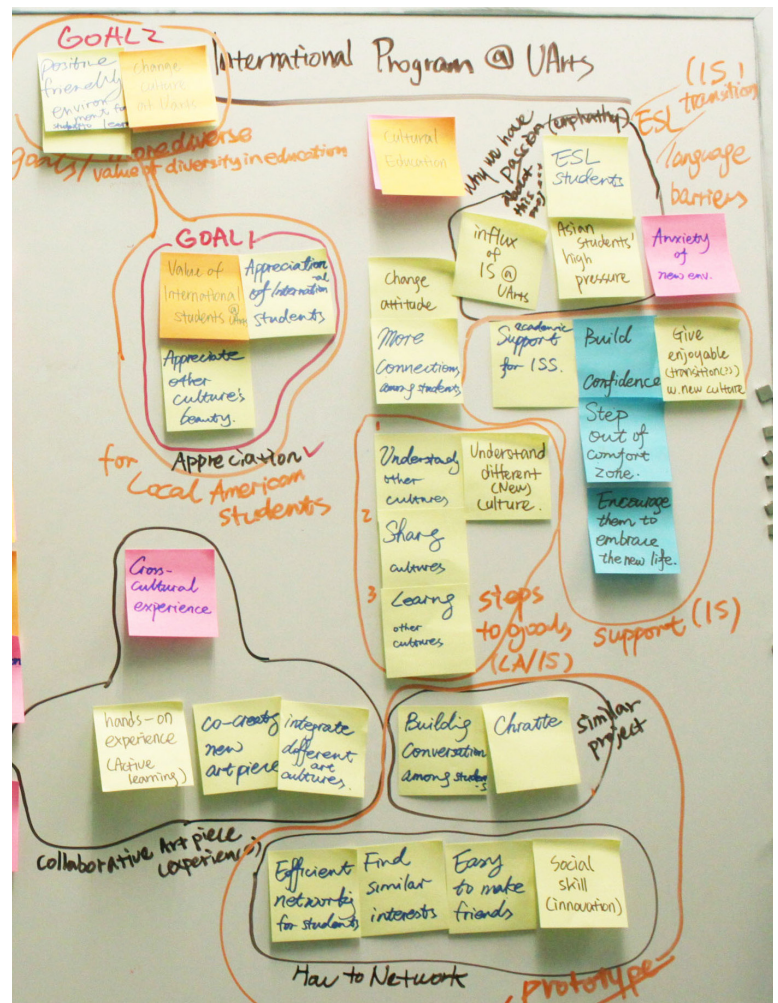 GOAL2
International Program @ UArts
positive
friendly
environ
ment for
students to learn
Change
culture
at UArts
goals/ more diverse
value of diversity in education
Cultural
Education
why we have
passion (emphathy)
about
this
ESL
students
(IS)
transition
ESL
language
barriers
influx
of
IS @
UArts
Asian
students'
high
pressure
Anxiety
of
new env.
GOAL1
Value of
International
students @ UArts
Appreciation
of Internation
-al
students
Appreciate
other
culture's
beauty.
Appreciation ✓
for
Local American
students
Change
attitude
More
Connections
among students
academic
Support
for ISS.
Build
Confidence
Give
enjoyable
(transition(?))
w. new culture
Step
out of
comfort
zone.
Encourage
them to
embrace
the new life.
support (IS)
1
Understandg
other
cultures
Understand
different
(New)
culture.
2
Sharng
cultures
3
Learng
other
cultures
steps
to goods,
(LA/IS)
Cross-
cultural
experience
hands-on
experience
(Active
learning)
co-creatg
new
art piece
integrate
different
art
cultures.
collaborative Art piece
(experience)
Buildig
Conversation
among students
Chratte
similar
project
Efficient
networkig
for students
Find
similar
interests
Easy
to make
friends
Social
skill
(innovation)
How to Network
prototype